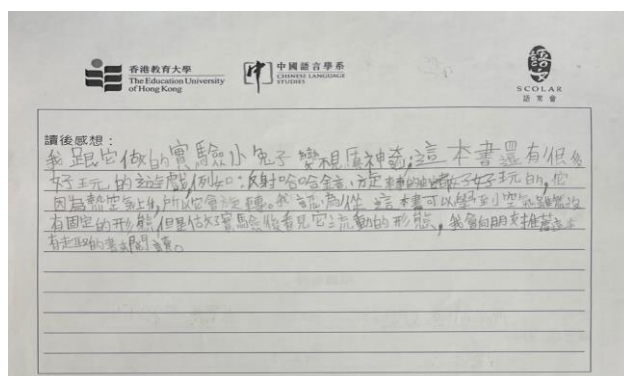 香港教育大學
The Education University
of Hong Kong
中國語言學系
CHINESE LANGUAGE
STUDIES
語文
SCOLAR
語常會
讀後感想：
我跟它做的實驗小兔子變想神奇，這本書還有很多
好玩的遊戲，例如：反射哈哈鏡、旋轉的好子好玩的，它
因為熱空氣上升，所以它會旋轉。我認為從這本書可以學到空氣雖然沒
有固定的形態，但是做好實驗後看見它流動的形態，我會向朋友推薦這本
有趣的書去閱讀。